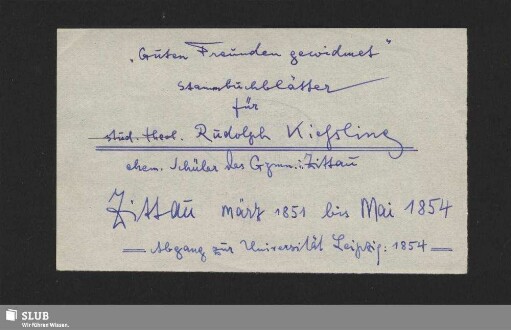 „Guten Freunden gewidmet“
Stammbuchblätter
für
stud. theol. Rudolph Kießling
ehem. Schüler des Gymn. i. Zittau
Zittau März 1851 bis Mai 1854
— Abgang zur Universität Leipzig: 1854 —
SLUB
Wir führen Wissen.